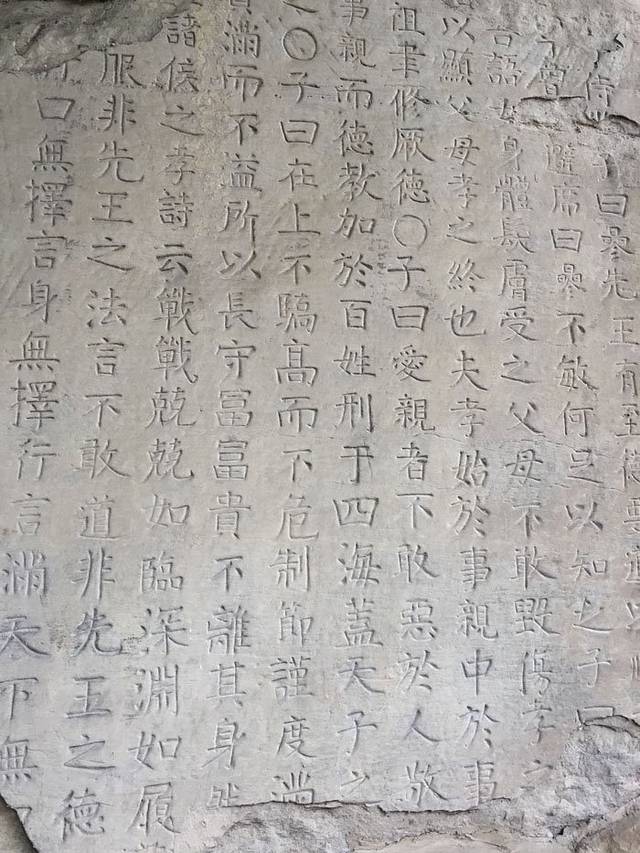 侍曰參先王有至德要道以
曾避席曰參不敏何足以知之子曰
語女身體髮膚受之父母不敢毀傷孝之
以顯父母孝之終也夫孝始於事親中於事
祖聿修厥德〇子曰愛親者不敢惡於人敬
事親而德教加於百姓刑于四海蓋天子之
之〇子曰在上不驕高而不危制節謹度滿
滿而不溢所以長守富富貴不離其身然
諸侯之孝詩云戰戰兢兢如臨深淵如履
服非先王之法言不敢道非先王之德
口無擇言身無擇行言滿天下無